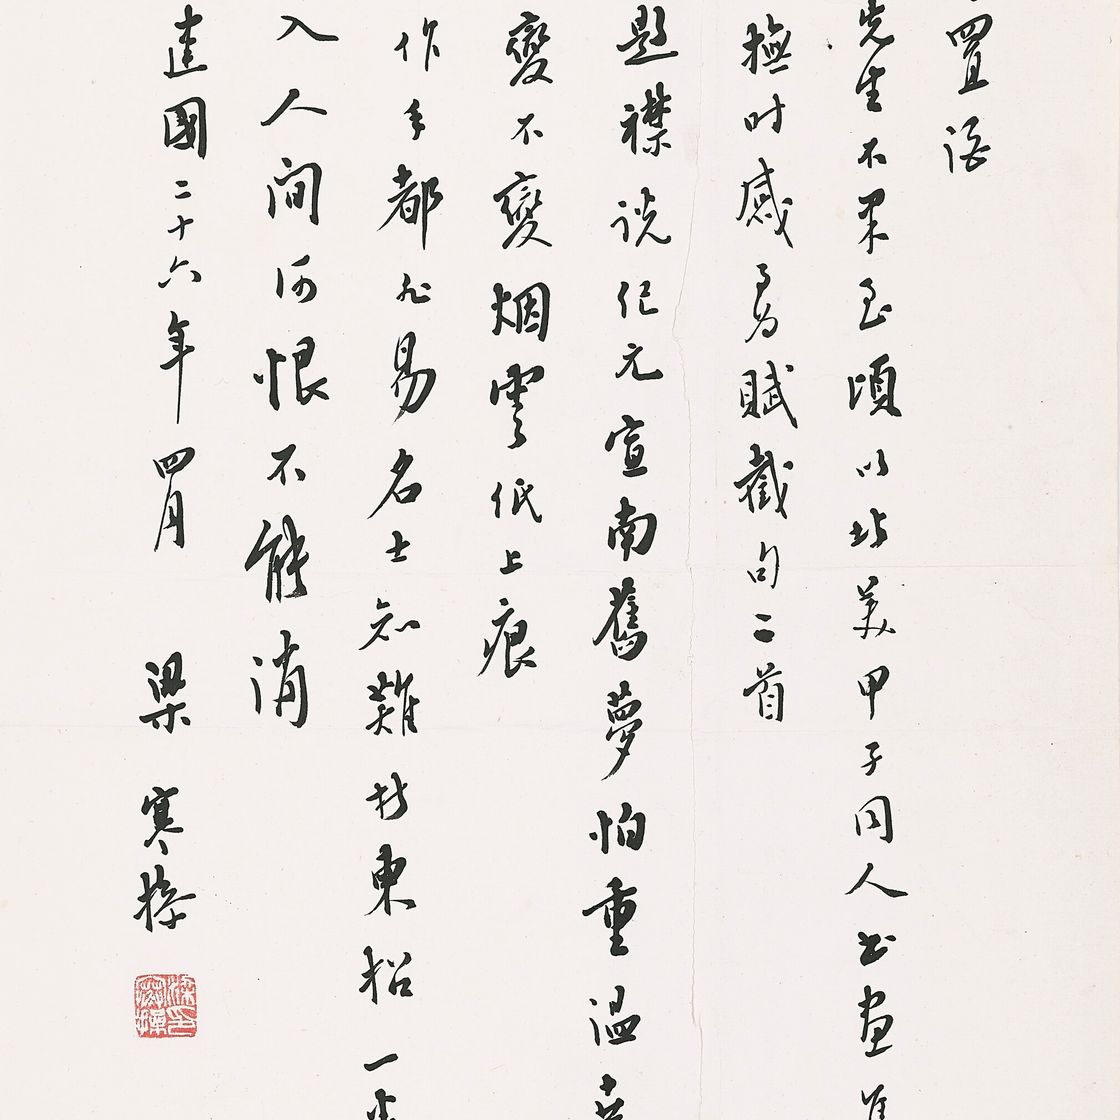 置
先生不果至頃以美甲子同人書画
撫时感賦截句二首
題襟説紀元宣南舊夢怕重温
變不變烟雲紙上痕
作手都非易名士知難東招一
入人間何恨不能消
建國二十六年四月 梁寒操
梁寒操印